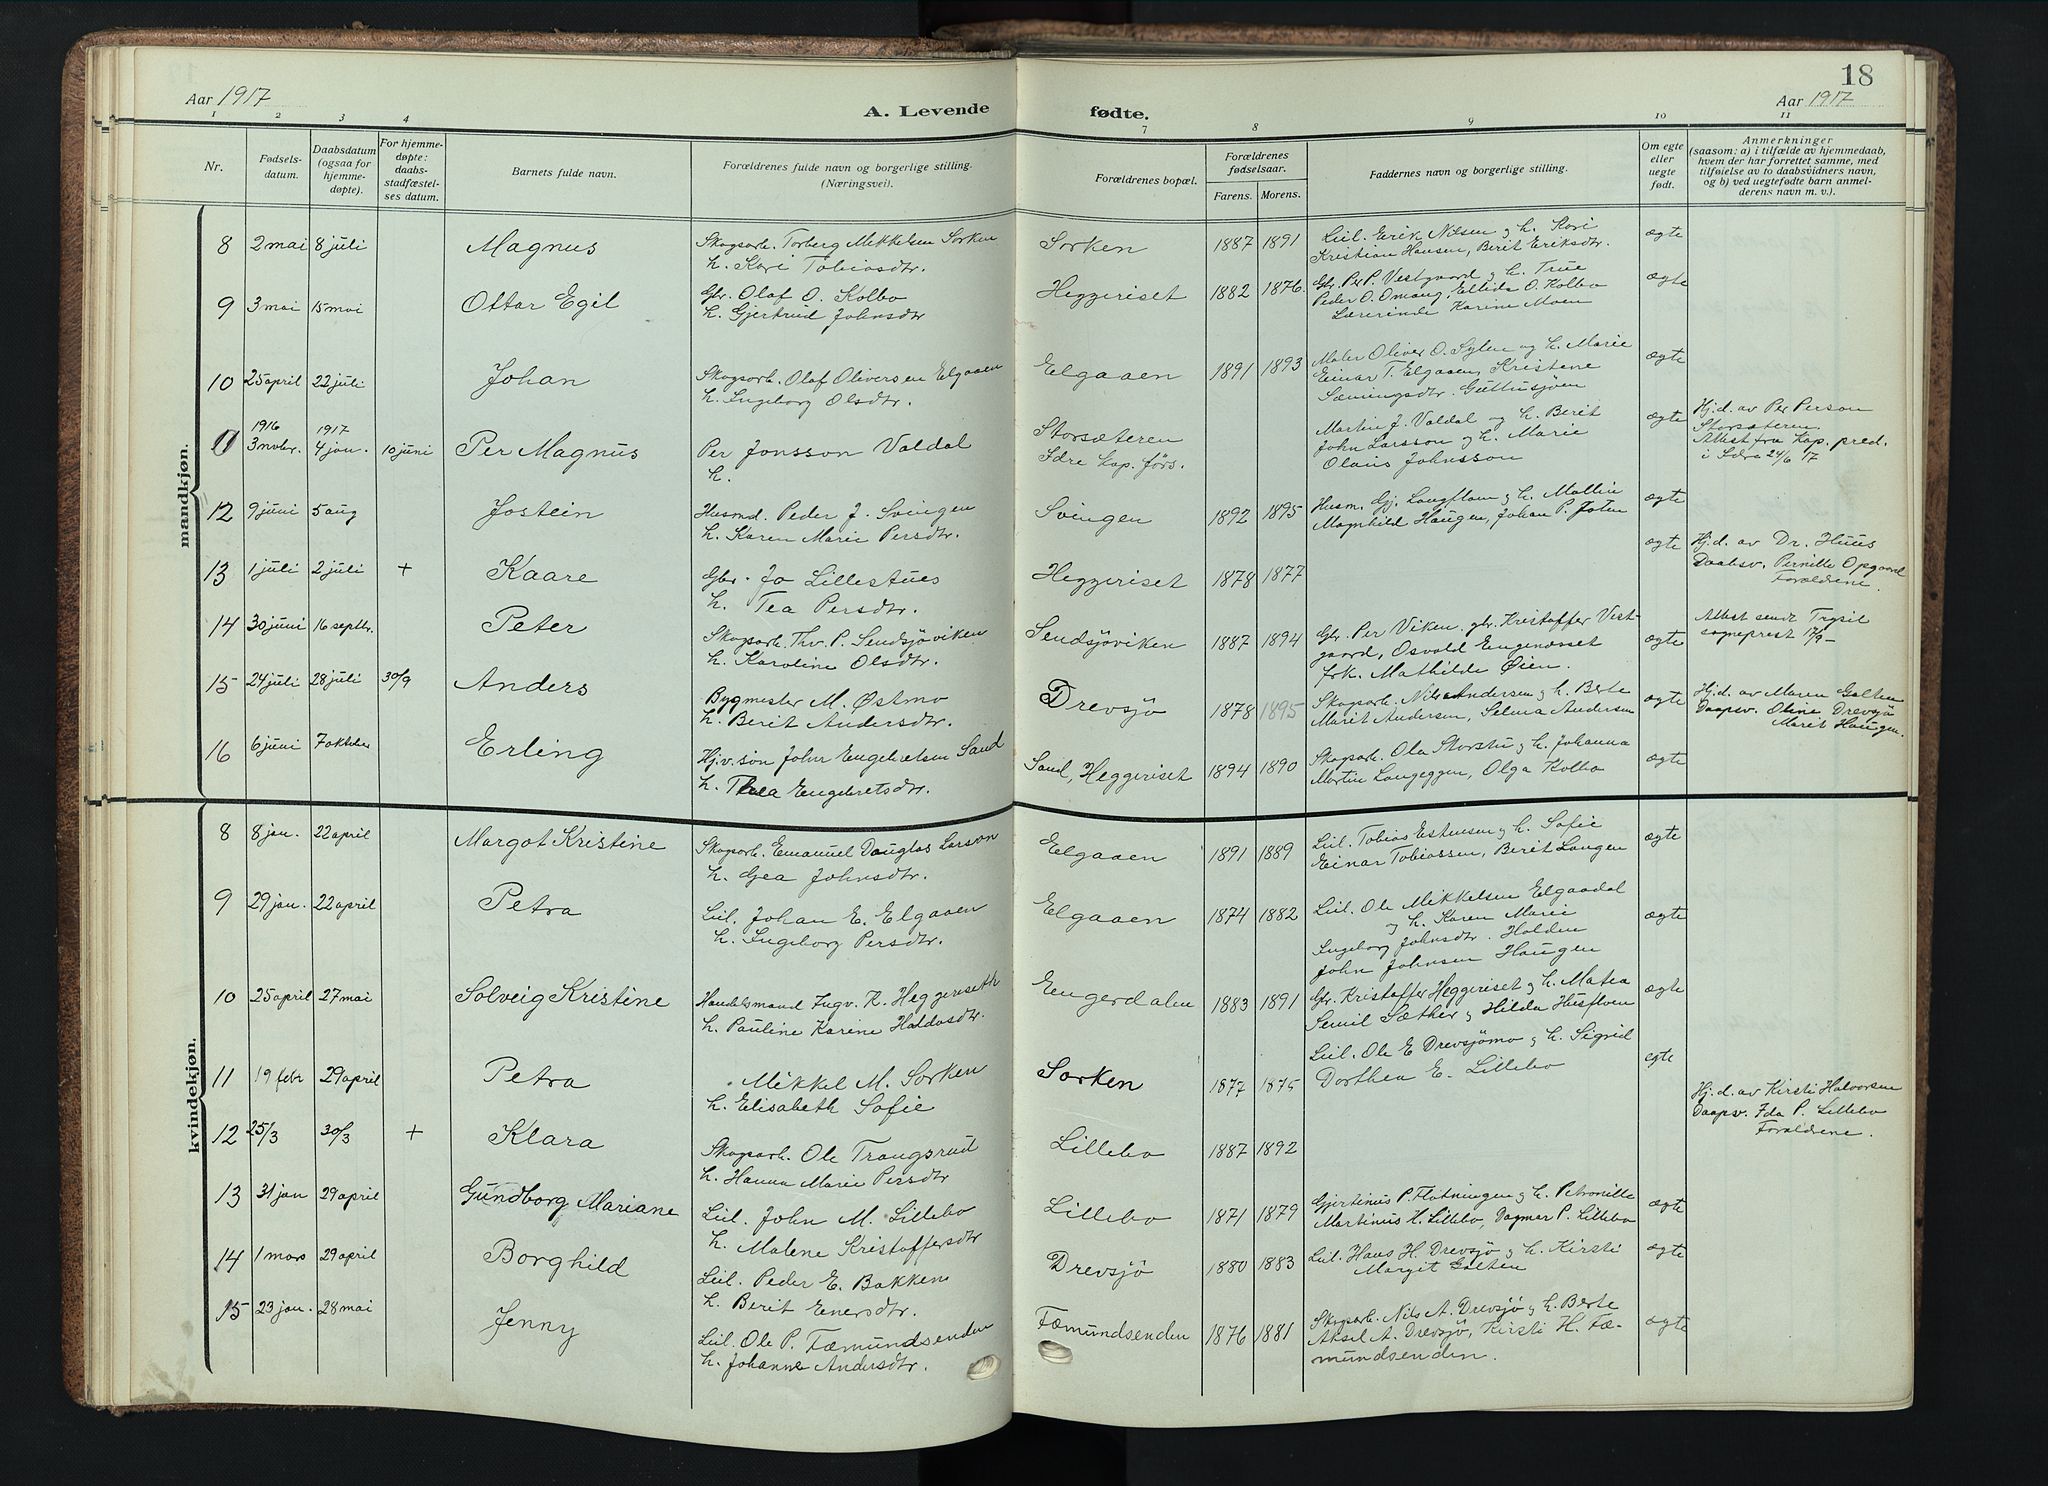 18
Aar 1917
A. Levende
fødte.
Aar 1917
1 2 3 4 7 8 9 10 11
Nr.
Fødsels-
datum.
Daabsdatum
(ogsaa for
hjemme-
døpte).
For hjemme-
døpte:
daabs-
stadfæstel-
ses datum.
Barnets fulde navn.
Forældrenes fulde navn og borgerlige stilling.
(Næringsvei).
Forældrenes bopæl.
Forældrenes
fødselsaar.
Farens. Morens.
Faddernes navn og borgerlige stilling.
Om egte
eller
uegte
født.
Anmerkninger
(saasom: a) i tilfælde av hjemmedaab,
hvem der har forrettet samme, med
tilføielse av to daabsvidners navn,
og b) ved uegtefødte barn anmel-
derens navn m. v.).
mandkjøn.
8 2 mai 8 juli Magnus
Skogsarb. Torberg Mikkelsen Sorken
h. Kari Tobiasdtr.
Sorken 1887 1891
Leil. Erik Nilsen og h. Kari
Kristian Hansen, Berit Eriksdtr.
ægte
9 3 mai 15 mai Ottar Egil
Gbr. Olaf O. Kolbo
h. Gjertrud Johnsdtr
Heggeriset 1882 1876.
Gbr. Per P. Vestgaard og h. True
Peder O. Omang, Ellida O. Kolbo
Lærerinde Karine Moen
ægte
10 25 april 22 juli Johan
Skogsarb. Olaf Oliversen Elgaaen
h. Ingeborg Olsdtr.
Elgaaen 1891 1893
Maler Oliver O. Sylen og h. Marie
Einar T. Elgaaen, Kristene
Sæmingsdtr. Guttusjøen
ægte
11 1916 3 novbr. 1917 4 jan. 10 juni Per Magnus
Per Jonsson Valdal
h.
Storsæteren
Idre kap. førs.
Martin J. Valdal og h. Berit
John Larsson og h. Marie
Olaus Johnsson
ægte
Hj.d. av Per Person
Storsæteren.
Attest fra Kap. pred.
i Idre 24/6 17
12 9 juni 5 aug Jostein
Husmd. Peder J. Svingen
h. Karen Marie Persdtr.
Svingen 1892 1895
Husm. Gj. Langflom og h. Mallin
Magnhild Haugen, Johan P. Joten
ægte
13 1 juli 2 juli + Kaare
Gbr. Jo Lillestues
h. Tea Persdtr.
Heggeriset 1878 1877
ægte
Hj.d. av Dr. Huus
Daabsv. Pernille Opgaard
Forældrene.
14 30 juni 16 septbr. Peter
Skogsarb. Thv. P. Sendsjøviken
h. Karoline Olsdtr.
Sendsjøviken 1887 1894
Gbr. Per Viken, gbr. Kristoffer Vest-
gaard, Osvald Engenæsset
frk. Mathilde Øien.
ægte
Attest sendt Trysil
sogneprest 17/9 –
15 24 juli 28 juli 30/9 Anders
Bygmester M. Østmo
h. Berit Andersdtr.
Drevsjø 1878 1895
Skogsarb. Nils Andersen og h. Berte
Marit Andersen, Selma Andersen
ægte
Hj.d. av Maren Galten
Daapsv. Oline Drevsjø
Marit Haugen.
16 6 juni 7 oktober Erling
Hj.v. søn John Engebretsen Sand
h. Thea Engebretsdtr.
Sand, Heggeriset 1894 1890
Skogsarb. Ola Storstu og h. Johanna
Martin Langeggen, Olga Kolbo
ægte
kvindekjøn.
8 8 jan. 22 april Margot Kristine
Skogsarb. Emanuel Douglas Larsson
h. Gea Johnsdtr.
Elgaaen 1891 1889
Leil. Tobias Estensen og h. Sofie
Einar Tobiassen, Berit Langen
ægte
9 29 jan. 22 april Petra
Leil. Johan E. Elgaaen
h. Ingeborg Persdtr.
Elgaaen 1874 1882
Leil. Ole Mikkelsen Elgaadal
og h. Karen Marie
Ingeborg Johnsdtr. Holden
John Johnsen Haugen
ægte
10 25 april 27 mai Solveig Kristine
Handelsmand Ingv. K. Heggeriseth
h. Pauline Karine Haldosdtr.
Engerdalen 1883 1891
Gbr. Kristoffer Heggeriset og h. Matea
Semil Sæther og Hilda Husfloen
ægte
11 19 febr 29 april Petra
Mikkel M. Sorken
h. Elisabeth Sofie
Sorken 1877 1875
Leil. Ole E Drevsjømo og h. Sigrid
Dorthea E. Lillebo
egte
12 25/3 30/3 + Klara
Skogsarb. Ole Trangsrud
h. Hanna Marie Persdtr
Lillebo 1887 1892
Hj.d. av Kirsti Halvorsen
Daapsv. Ida P. Lillebo
Forældrene.
13 31 jan 29 april Gundborg Mariane
Leil. John M. Lillebo
h. Malene Kristoffersdtr
Lillebo 1871 1879
Gjertinus P. Flotningen og h. Petronille
Martinus H. Lillebo, Dagmar P. Lillebo
ægte
14 1 mars 29 april Borghild
Leil. Peder E. Bakken
h. Berit Enersdtr.
Drevsjø 1880 1883
Leil. Hans H. Drevsjø og h. Kirsti
Margit Galten
ægte
15 23 jan. 28 mai Jenny
Leil. Ole P. Fæmundsenden
h. Johanne Andersdtr.
Fæmundsenden 1876 1881
Skogsarb. Nils A. Drevsjø og h. Berte
Aksel A. Drevsjø, Kirsti H. Fæ-
mundsenden.
ægte